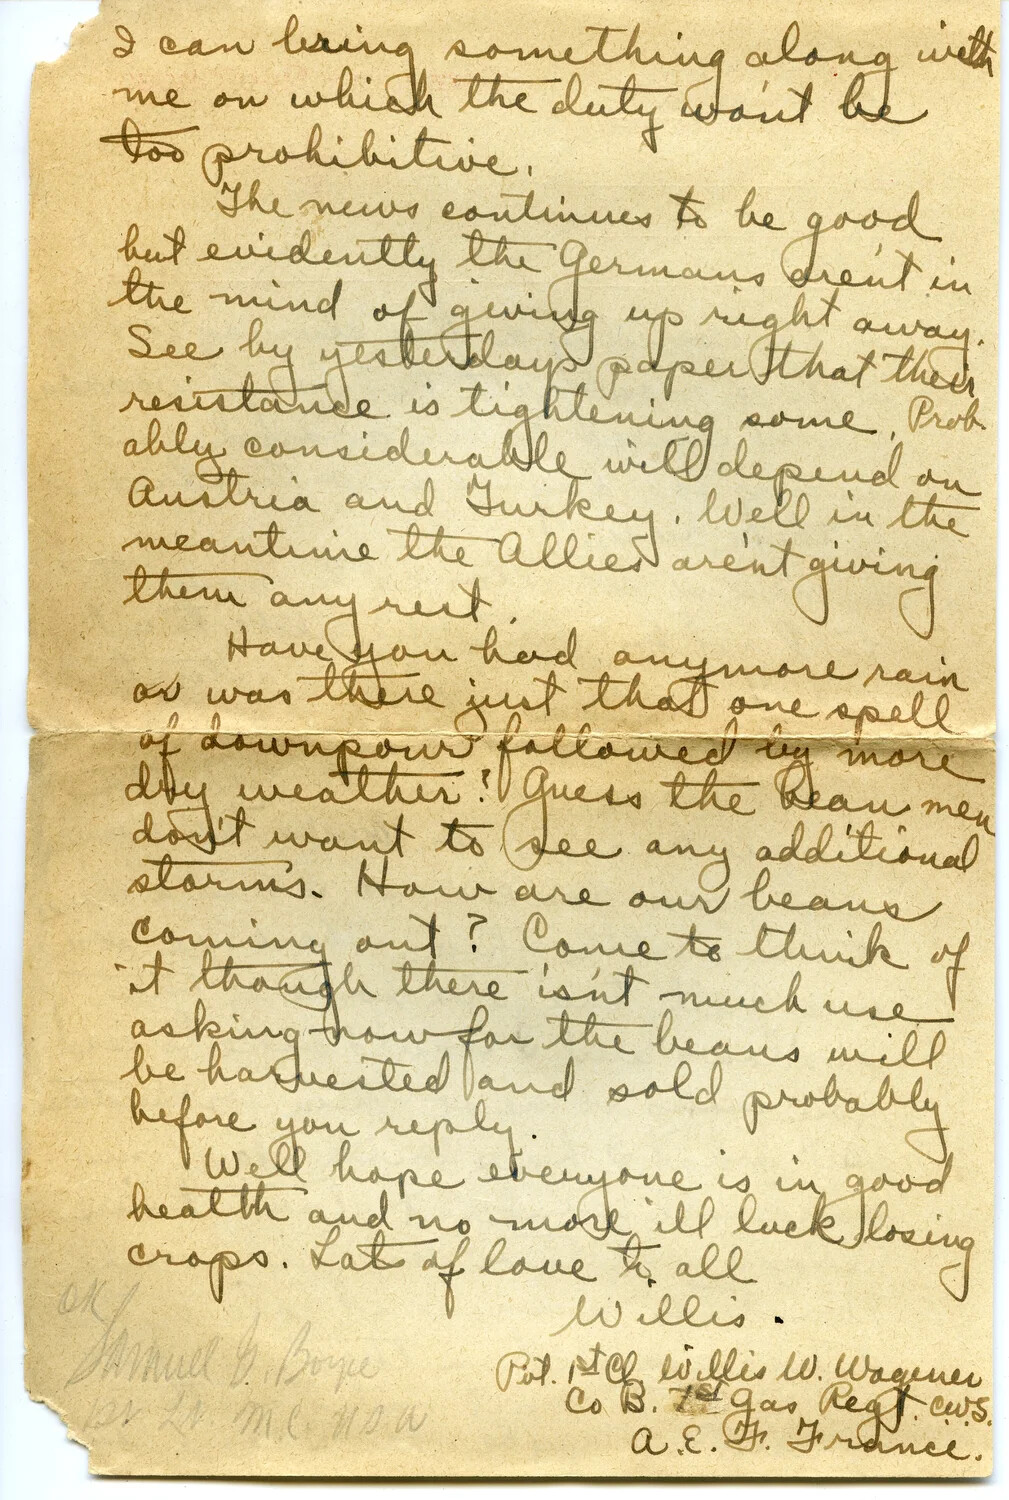 I can bring something along with
me on which the duty won't be
too prohibitive.
The news continues to be good
but evidently the Germans aren't in
the mind of giving up right away.
See by yesterdays paper that their
resistance is tightening some. Prob-
ably considerable will depend on
Austria and Turkey. Well in the
meantime the Allies aren't giving
them any rest.
Have you had anymore rain
or was there just that one spell
of downpour followed by more
dry weather? Guess the bean men
don't want to see any additional
storms. How are our beans
coming out? Come to think of
it though there isn't much use
asking now for the beans will
be harvested and sold probably
before you reply.
Well hope everyone is in good
health and no more ill luck losing
crops. Lots of love to all
Willis.
Pvt. 1st Cl Willis W. Wagener
Co B. 1st Gas Regt. C.W.S.
A. E. F. France.
OK
Samuel G. Boyce
1st Lt M.C. U S A